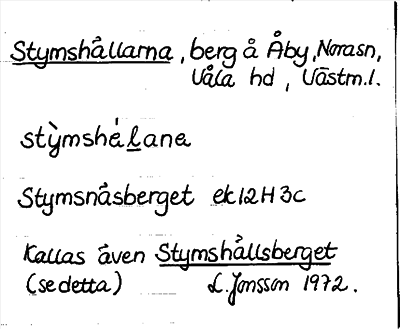 Stymshållarna, berg å Åby, Norasn,
Våla hd, Västm.l.
sty̆̀mshélana
Stymsnäsberget ek 12H3c
Kallas även Stymshällsberget
(se detta) L. Jonsson 1972.